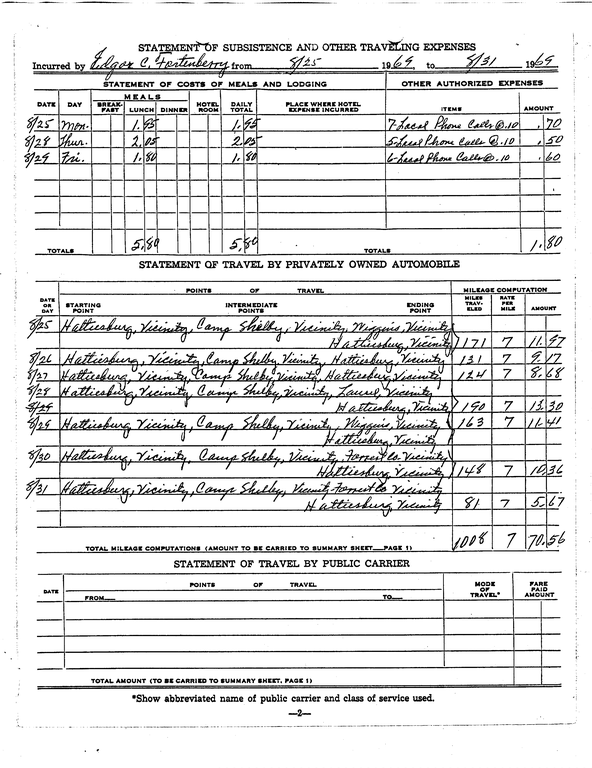 STATEMENT OF SUBSISTENCE AND OTHER TRAVELING EXPENSES
Incurred by Edgar C. Fortenberry from 8/25 1969 to 8/31 1969
STATEMENT OF COSTS OF MEALS AND LODGING OTHER AUTHORIZED EXPENSES
MEALS
DATE DAY BREAK-FAST LUNCH DINNER HOTEL ROOM DAILY TOTAL PLACE WHERE HOTEL EXPENSE INCURRED ITEMS AMOUNT
8/25 Mon. 1.95 1.95 7-Local Phone Calls @.10 .70
8/28 Thur. 2.05 2.05 5-Local Phone Calls @.10 .50
8/29 Fri. 1.80 1.80 6-Local Phone Calls @.10 .60
TOTALS 5.80 5.80 TOTALS 1.80
STATEMENT OF TRAVEL BY PRIVATELY OWNED AUTOMOBILE
POINTS OF TRAVEL MILEAGE COMPUTATION
DATE OR DAY STARTING POINT INTERMEDIATE POINTS ENDING POINT MILES TRAV-ELED RATE PER MILE AMOUNT
8/25 Hattiesburg, Vicinity, Camp Shelby, Vicinity, Wiggins, Vicinity
Hattiesburg, Vicinity 171 7 11.97
8/26 Hattiesburg, Vicinity, Camp Shelby, Vicinity, Hattiesburg, Vicinity 131 7 9.17
8/27 Hattiesburg, Vicinity, Camp Shelby Vicinity, Hattiesburg Vicinity 124 7 8.68
8/28 Hattiesburg, Vicinity Camp Shelby, Vicinity, Laurel, Vicinity
8/29 Hattiesburg, Vicinity 190 7 13.30
8/29 Hattiesburg Vicinity, Camp Shelby, Vicinity, Wiggins, Vicinity 163 7 11.41
Hattiesburg, Vicinity
8/30 Hattiesburg, Vicinity, Camp Shelby, Vicinity, Forrest Co. Vicinity
Hattiesburg Vicinity 148 7 10.36
8/31 Hattiesburg, Vicinity, Camp Shelby, Vicinity Forrest Co Vicinity
Hattiesburg, Vicinity 81 7 5.67
TOTAL MILEAGE COMPUTATIONS (AMOUNT TO BE CARRIED TO SUMMARY SHEET—PAGE 1) 1008 7 70.56
STATEMENT OF TRAVEL BY PUBLIC CARRIER
DATE POINTS OF TRAVEL MODE OF TRAVEL* FARE PAID AMOUNT
FROM— TO—
TOTAL AMOUNT (TO BE CARRIED TO SUMMARY SHEET, PAGE 1)
*Show abbreviated name of public carrier and class of service used.
—2—